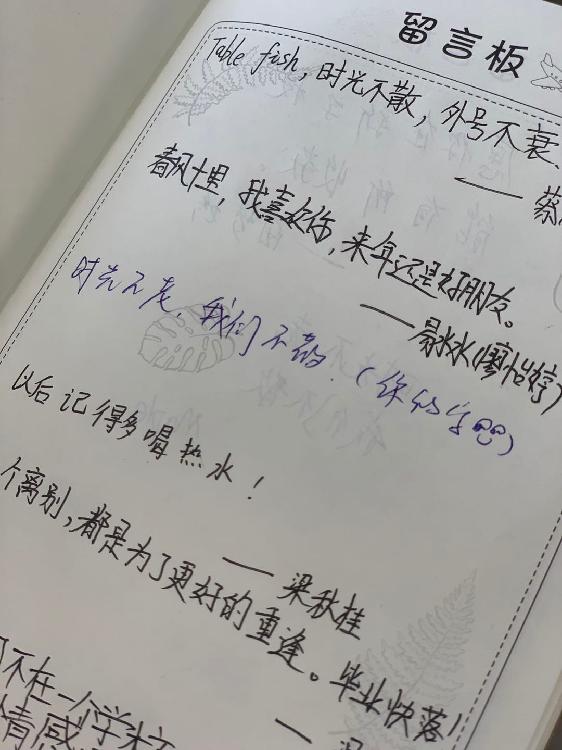 留言板
Table fish, 时光不散, 外号不衰
—— 蔡
春风十里, 我喜欢你, 来年还是好朋友。
—— 易水水(廖怡婷)
时光不老, 我们不散. (你的
以后记得多喝热水!
—— 梁秋桂
个离别, 都是为了更好的重逢。毕业快落!
不在一个学校
情感